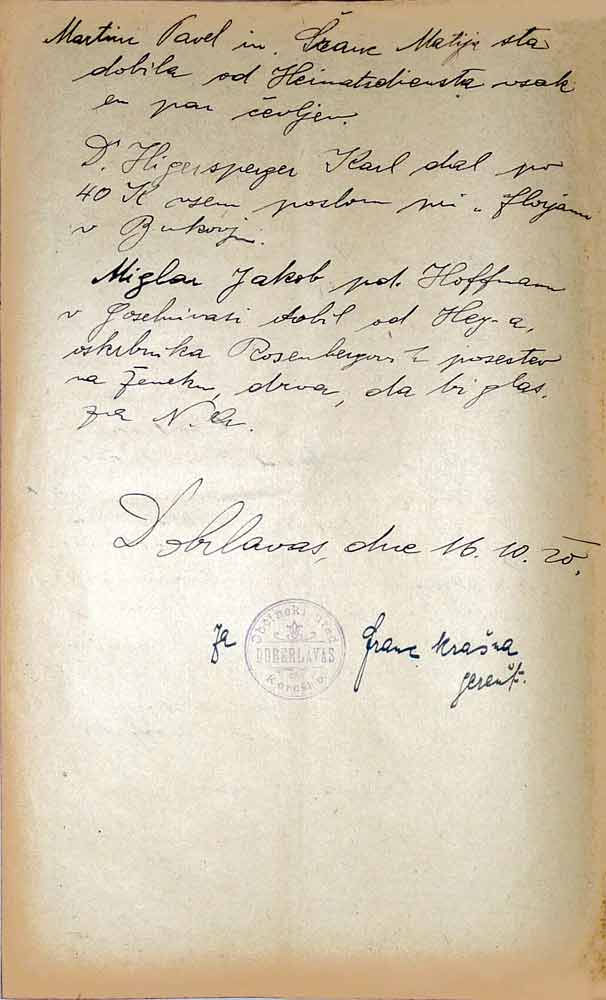 Martinc Pavel in Ščanc Matija sta
dobila od Heimatsdiensta vsak
en par čevljev.
Dr. Higersperger Karl dal po
40 K vsem poslom pri
v Bukovju.
Miglar Jakob pd. Hoffman
v Goselnivasi dobil od Hey-a,
oskrbnika posestev
na Ženeku, drva, da bi glas.
za N.A.
Doberlavas, dne 16. 10. 20.
Za
Občinski urad
DOBERLAVAS
Koroško
Franc Krašna
gerent.